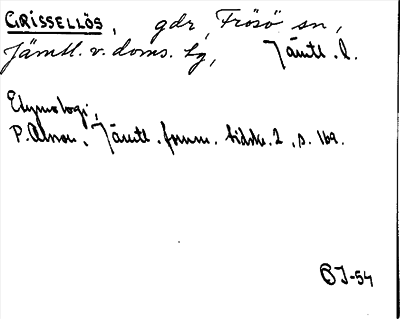 GRISSELLÖS, gdr, Frösö sn,
Jämtl. v. doms. tg, Jämtl. l.
Etymologi:
P. Olsson, Jämtl. fornm. tidskr. 2, s. 169.
BJ-54